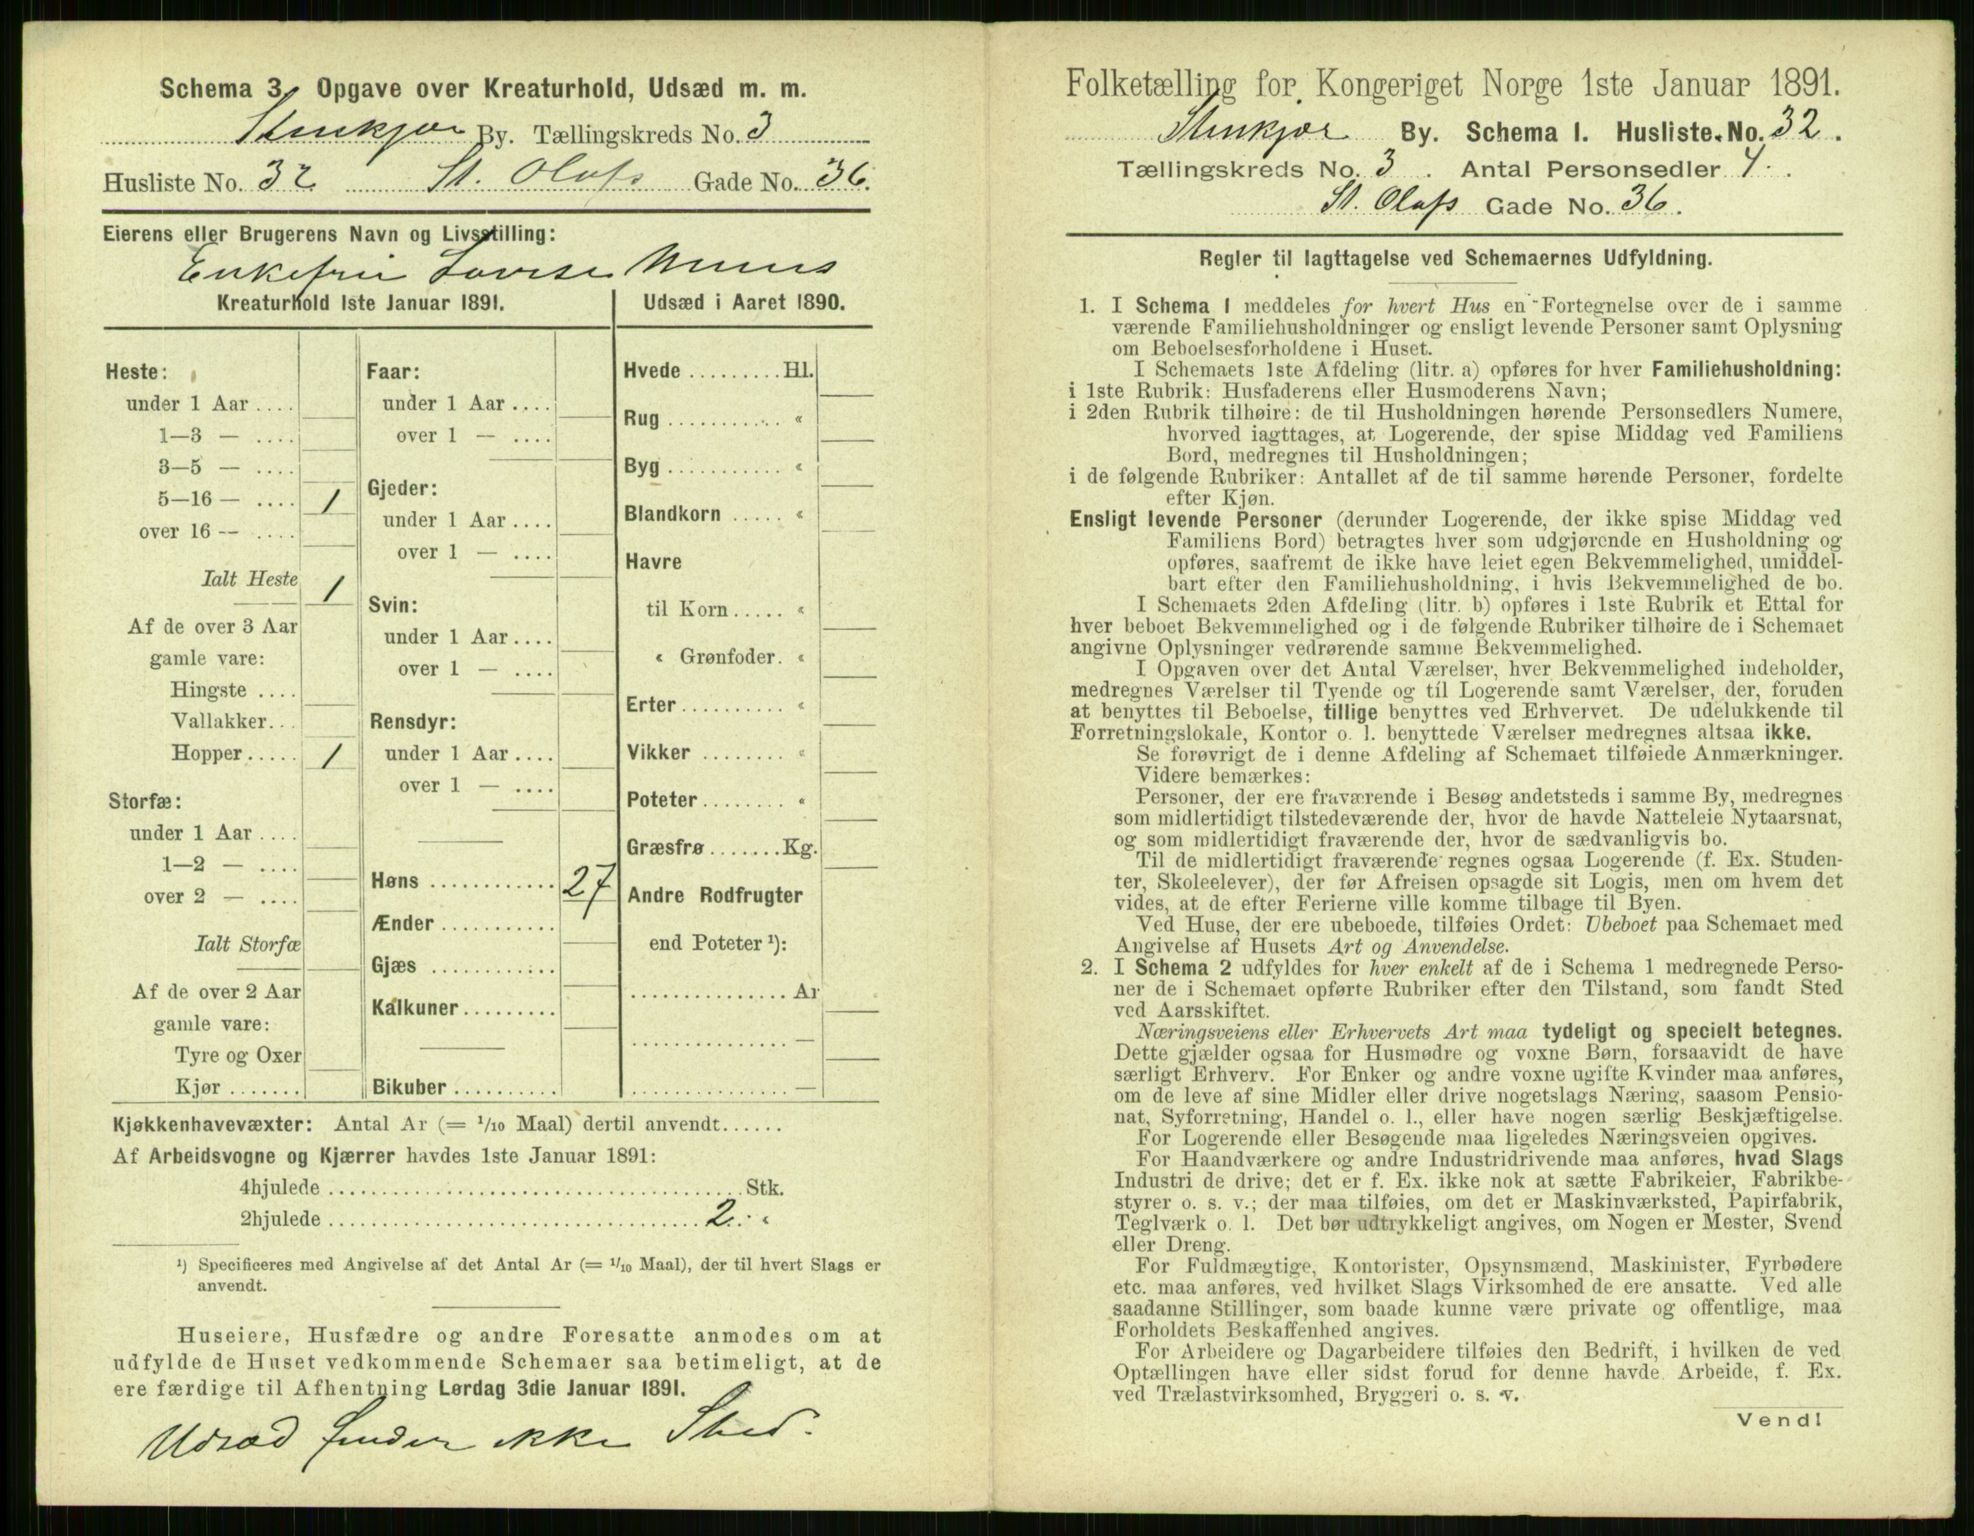 Schema 3. Opgave over Kreaturhold, Udsæd m. m.
Stenkjær By. Tællingskreds No. 3
Husliste No. 32 St. Olafs Gade No. 36.
Eierens eller Brugerens Navn og Livsstilling:
Enkefru Lovise
Kreaturhold 1ste Januar 1891.
Heste:
under 1 Aar ....
1—3 — ....
3—5 — ....
5—16 — .... 1
over 16 — ....
Ialt Heste 1
Af de over 3 Aar
gamle vare:
Hingste ....
Vallakker...
Hopper..... 1
Storfæ:
under 1 Aar ....
1—2 — ....
over 2 — ....
Ialt Storfæ
Af de over 2 Aar
gamle vare:
Tyre og Oxer
Kjør .......
Faar:
under 1 Aar ....
over 1 — ....
Gjeder:
under 1 Aar ....
over 1 — ....
Svin:
under 1 Aar ....
over 1 — ....
Rensdyr:
under 1 Aar ....
over 1 — ....
Høns ............ 27
Ænder ...........
Gjæs ............
Kalkuner.........
Bikuber ..........
Udsæd i Aaret 1890.
Hvede .........Hl.
Rug ........... «
Byg ........... «
Blandkorn ..... «
Havre
til Korn..... «
« Grønfoder. «
Erter.......... «
Vikker ........ «
Poteter........ «
Græsfrø.......Kg.
Andre Rodfrugter
end Poteter ¹):
...............Ar
............... —
............... —
Kjøkkenhavevæxter: Antal Ar (= 1/10 Maal) dertil anvendt......
Af Arbeidsvogne og Kjærrer havdes 1ste Januar 1891:
4hjulede ........................................Stk.
2hjulede .................................... 2. «
¹) Specificeres med Angivelse af det Antal Ar (= 1/10 Maal), der til hvert Slags er
anvendt.
Huseiere, Husfædre og andre Foresatte anmodes om at
udfylde de Huset vedkommende Schemaer saa betimeligt, at de
ere færdige til Afhentning Lørdag 3die Januar 1891.
Udsæd finder ikke Sted.
Folketælling for Kongeriget Norge 1ste Januar 1891.
Stenkjær By. Schema 1. Husliste No. 32.
Tællingskreds No. 3. Antal Personsedler 4.
St. Olafs Gade No. 36.
Regler til Iagttagelse ved Schemaernes Udfyldning.
1. I Schema 1 meddeles for hvert Hus en Fortegnelse over de i samme
værende Familiehusholdninger og ensligt levende Personer samt Oplysning
om Beboelsesforholdene i Huset.
I Schemaets 1ste Afdeling (litr. a) opføres for hver Familiehusholdning:
i 1ste Rubrik: Husfaderens eller Husmoderens Navn;
i 2den Rubrik tilhøire: de til Husholdningen hørende Personsedlers Numere,
hvorved iagttages, at Logerende, der spise Middag ved Familiens
Bord, medregnes til Husholdningen;
i de følgende Rubriker: Antallet af de til samme hørende Personer, fordelte
efter Kjøn.
Ensligt levende Personer (derunder Logerende, der ikke spise Middag ved
Familiens Bord) betragtes hver som udgjørende en Husholdning og
opføres, saafremt de ikke have leiet egen Bekvemmelighed, umiddel-
bart efter den Familiehusholdning, i hvis Bekvemmelighed de bo.
I Schemaets 2den Afdeling (litr. b) opføres i 1ste Rubrik et Ettal for
hver beboet Bekvemmelighed og i de følgende Rubriker tilhøire de i Schemaet
angivne Oplysninger vedrørende samme Bekvemmelighed.
I Opgaven over det Antal Værelser, hver Bekvemmelighed indeholder,
medregnes Værelser til Tyende og til Logerende samt Værelser, der, foruden
at benyttes til Beboelse, tillige benyttes ved Erhvervet. De udelukkende til
Forretningslokale, Kontor o. l. benyttede Værelser medregnes altsaa ikke.
Se forøvrigt de i denne Afdeling af Schemaet tilføiede Anmærkninger.
Videre bemærkes:
Personer, der ere fraværende i Besøg andetsteds i samme By, medregnes
som midlertidigt tilstedeværende der, hvor de havde Natteleie Nytaarsnat,
og som midlertidigt fraværende der, hvor de sædvanligvis bo.
Til de midlertidigt fraværende regnes ogsaa Logerende (f. Ex. Studen-
ter, Skoleelever), der før Afreisen opsagde sit Logis, men om hvem det
vides, at de efter Ferierne ville komme tilbage til Byen.
Ved Huse, der ere ubeboede, tilføies Ordet: Ubeboet paa Schemaet med
Angivelse af Husets Art og Anvendelse.
2. I Schema 2 udfyldes for hver enkelt af de i Schema 1 medregnede Perso-
ner de i Schemaet opførte Rubriker efter den Tilstand, som fandt Sted
ved Aarsskiftet.
Næringsveiens eller Erhvervets Art maa tydeligt og specielt betegnes.
Dette gjælder ogsaa for Husmødre og voxne Børn, forsaavidt de have
særligt Erhverv. For Enker og andre voxne ugifte Kvinder maa anføres,
om de leve af sine Midler eller drive nogetslags Næring, saasom Pensio-
nat, Syforretning, Handel o. l., eller have nogen særlig Beskjæftigelse.
For Logerende eller Besøgende maa ligeledes Næringsveien opgives.
For Haandværkere og andre Industridrivende maa anføres, hvad Slags
Industri de drive; det er f. Ex. ikke nok at sætte Fabrikeier, Fabrikbe-
styrer o. s. v.; der maa tilføies, om det er Maskinværksted, Papirfabrik,
Teglværk o. l. Det bør udtrykkeligt angives, om Nogen er Mester, Svend
eller Dreng.
For Fuldmægtige, Kontorister, Opsynsmænd, Maskinister, Fyrbødere
etc. maa anføres, ved hvilket Slags Virksomhed de ere ansatte. Ved alle
saadanne Stillinger, som baade kunne være private og offentlige, maa
Forholdets Beskaffenhed angives.
For Arbeidere og Dagarbeidere tilføies den Bedrift, i hvilken de ved
Optællingen have eller sidst forud for denne havde Arbeide, f. Ex.
ved Trælastvirksomhed, Bryggeri o. s. v.
Vend!